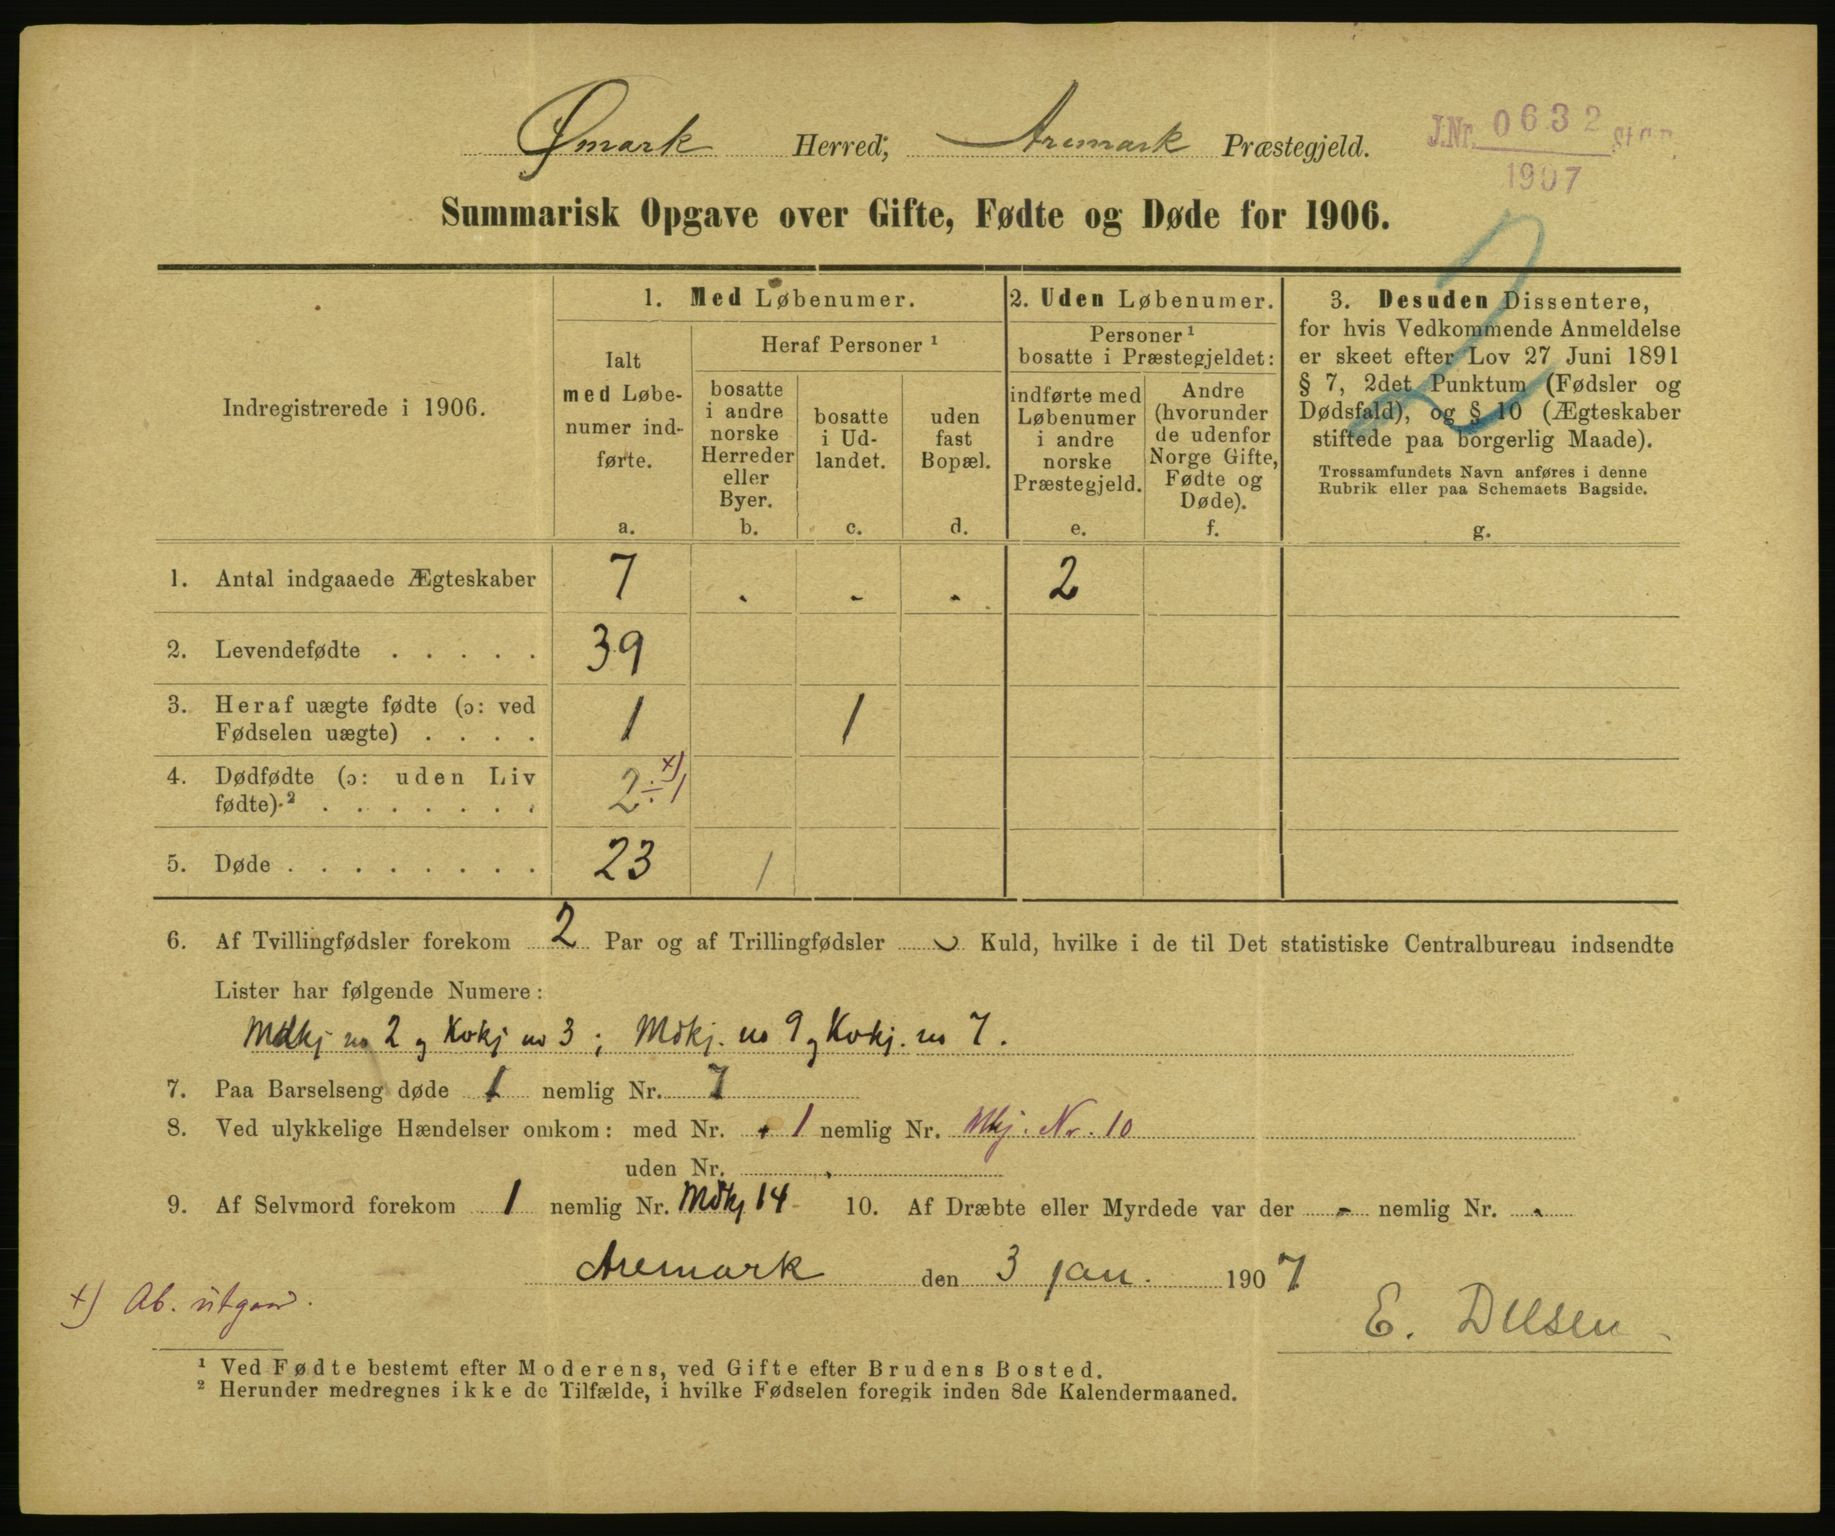 Ømark Herred; Aremark Præstegjeld.
J.Nr. 0632
1907
Summarisk Opgave over Gifte, Fødte og Døde for 1906.
2
Indregistrerede i 1906.
1. Med Løbenumer.
Ialt med Løbe-
numer ind-
førte.
a.
Heraf Personer ¹
bosatte
i andre
norske
Herreder
eller
Byer.
b.
bosatte
i Ud-
landet.
c.
uden
fast
Bopæl.
d.
2. Uden Løbenumer.
Personer ¹
bosatte i Præstegjeldet:
indførte med
Løbenumer
i andre
norske
Præstegjeld.
e.
Andre
(hvorunder
de udenfor
Norge Gifte,
Fødte og
Døde).
f.
3. Desuden Dissentere,
for hvis Vedkommende Anmeldelse
er skeet efter Lov 27 Juni 1891
§ 7, 2det Punktum (Fødsler og
Dødsfald), og § 10 (Ægteskaber
stiftede paa borgerlig Maade).
Trossamfundets Navn anføres i denne
Rubrik eller paa Schemaets Bagside.
g.
1. Antal indgaaede Ægteskaber 7 . - - 2
2. Levendefødte . . . . . 39
3. Heraf uægte fødte (ɔ: ved
Fødselen uægte) . . . . 1 1
4. Dødfødte (ɔ: uden Liv
fødte).² . . . . . . . 2 ÷ 1 x)
5. Døde . . . . . . . . 23 1
6. Af Tvillingfødsler forekom 2 Par og af Trillingfødsler Kuld, hvilke i de til Det statistiske Centralbureau indsendte
Lister har følgende Numere:
Mdkj no 2 og Kvkj no 3 ; Mdkj. no 9 og Kvkj. no 7.
7. Paa Barselseng døde 1 nemlig Nr. 7
8. Ved ulykkelige Hændelser omkom: med Nr. 1 nemlig Nr. Mkj. Nr. 10
uden Nr. .
9. Af Selvmord forekom 1 nemlig Nr. Mdkj 14 10. Af Dræbte eller Myrdede var der - nemlig Nr. .
Aremark den 3 jan. 1907
x) Ab. utgaar.
E.
¹ Ved Fødte bestemt efter Moderens, ved Gifte efter Brudens Bosted.
² Herunder medregnes ikke de Tilfælde, i hvilke Fødselen foregik inden 8de Kalendermaaned.